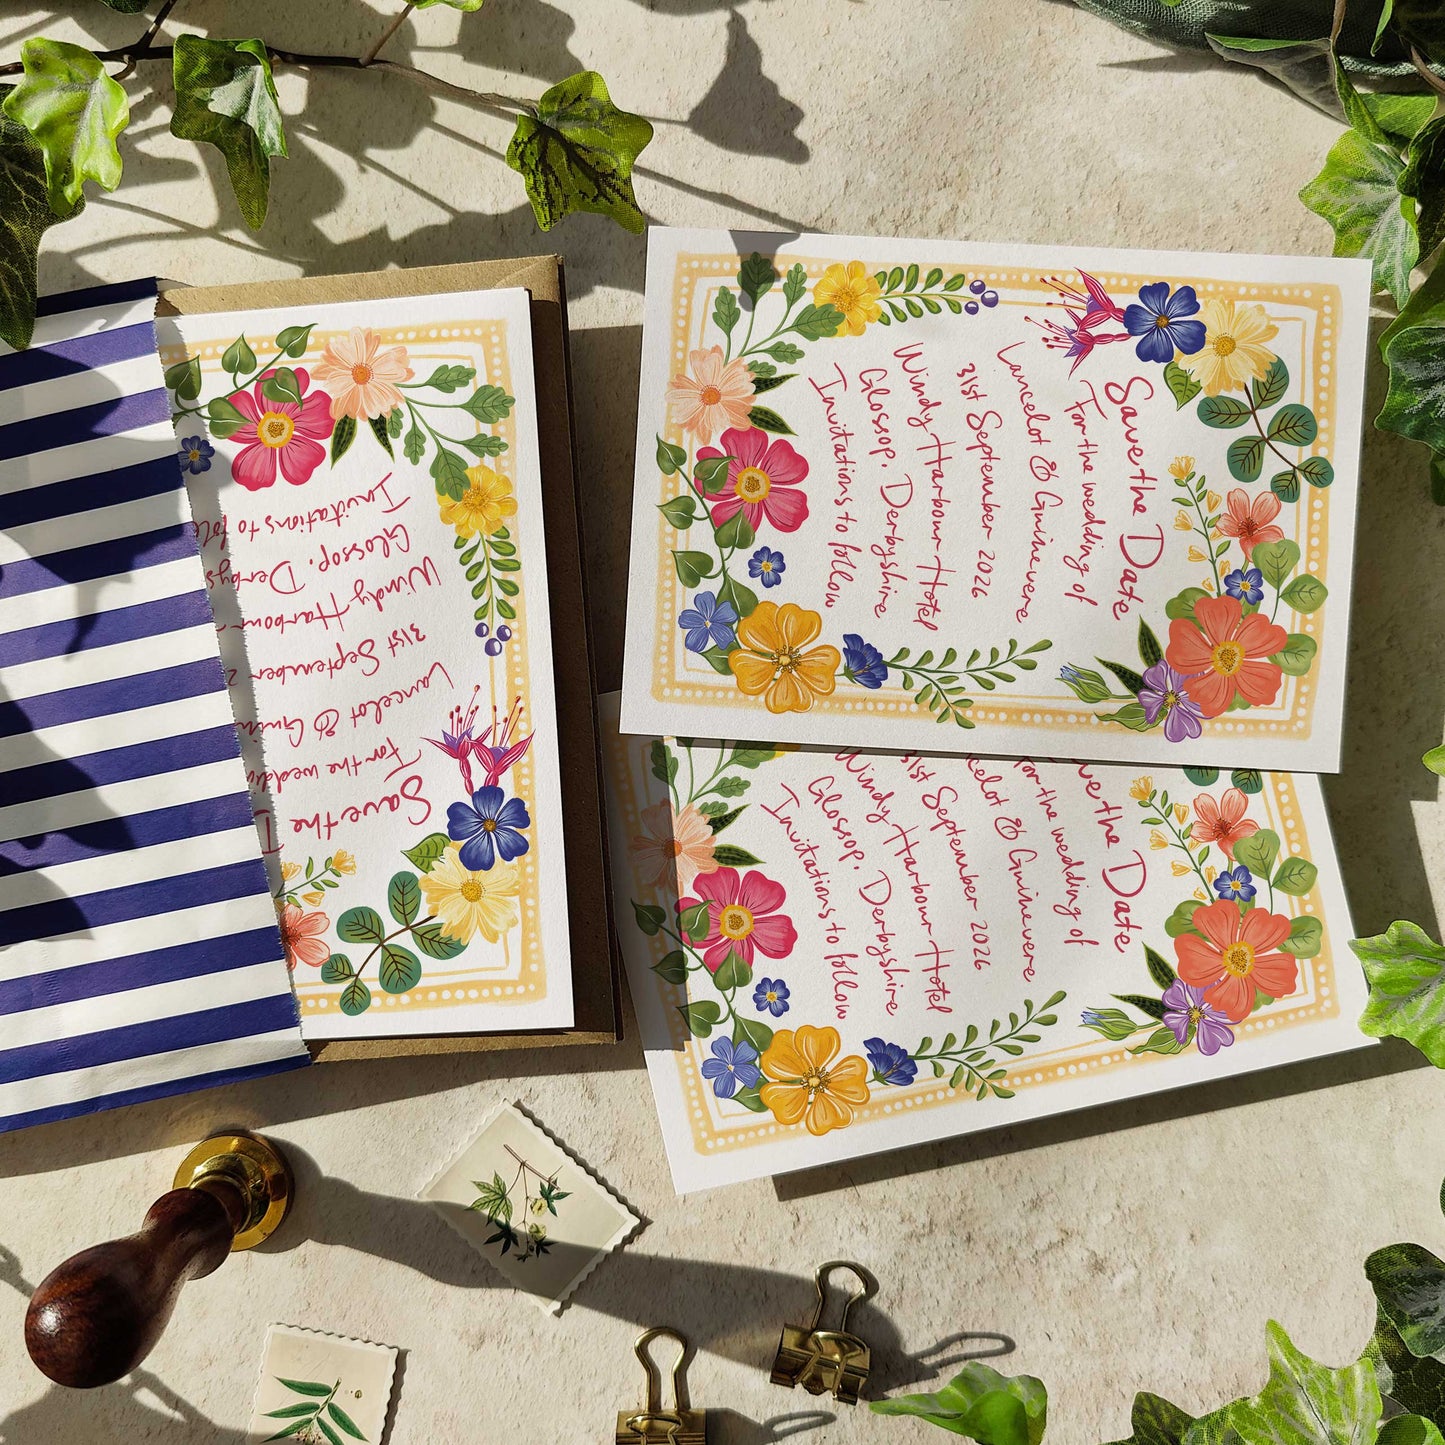 Save the Date
For the wedding of
Lancelot & Guinevere
31st September 2026
Windy Harbour Hotel
Glossop, Derbyshire
Invitations to follow
Save the D
For the weddin
Lancelot & Guin
31st September 2
Windy Harbour
Glossop, Derbys
Invitations to foll
ve the Date
For the wedding of
celot & Guinevere
31st September 2026
Windy Harbour Hotel
Glossop, Derbyshire
Invitations to follow